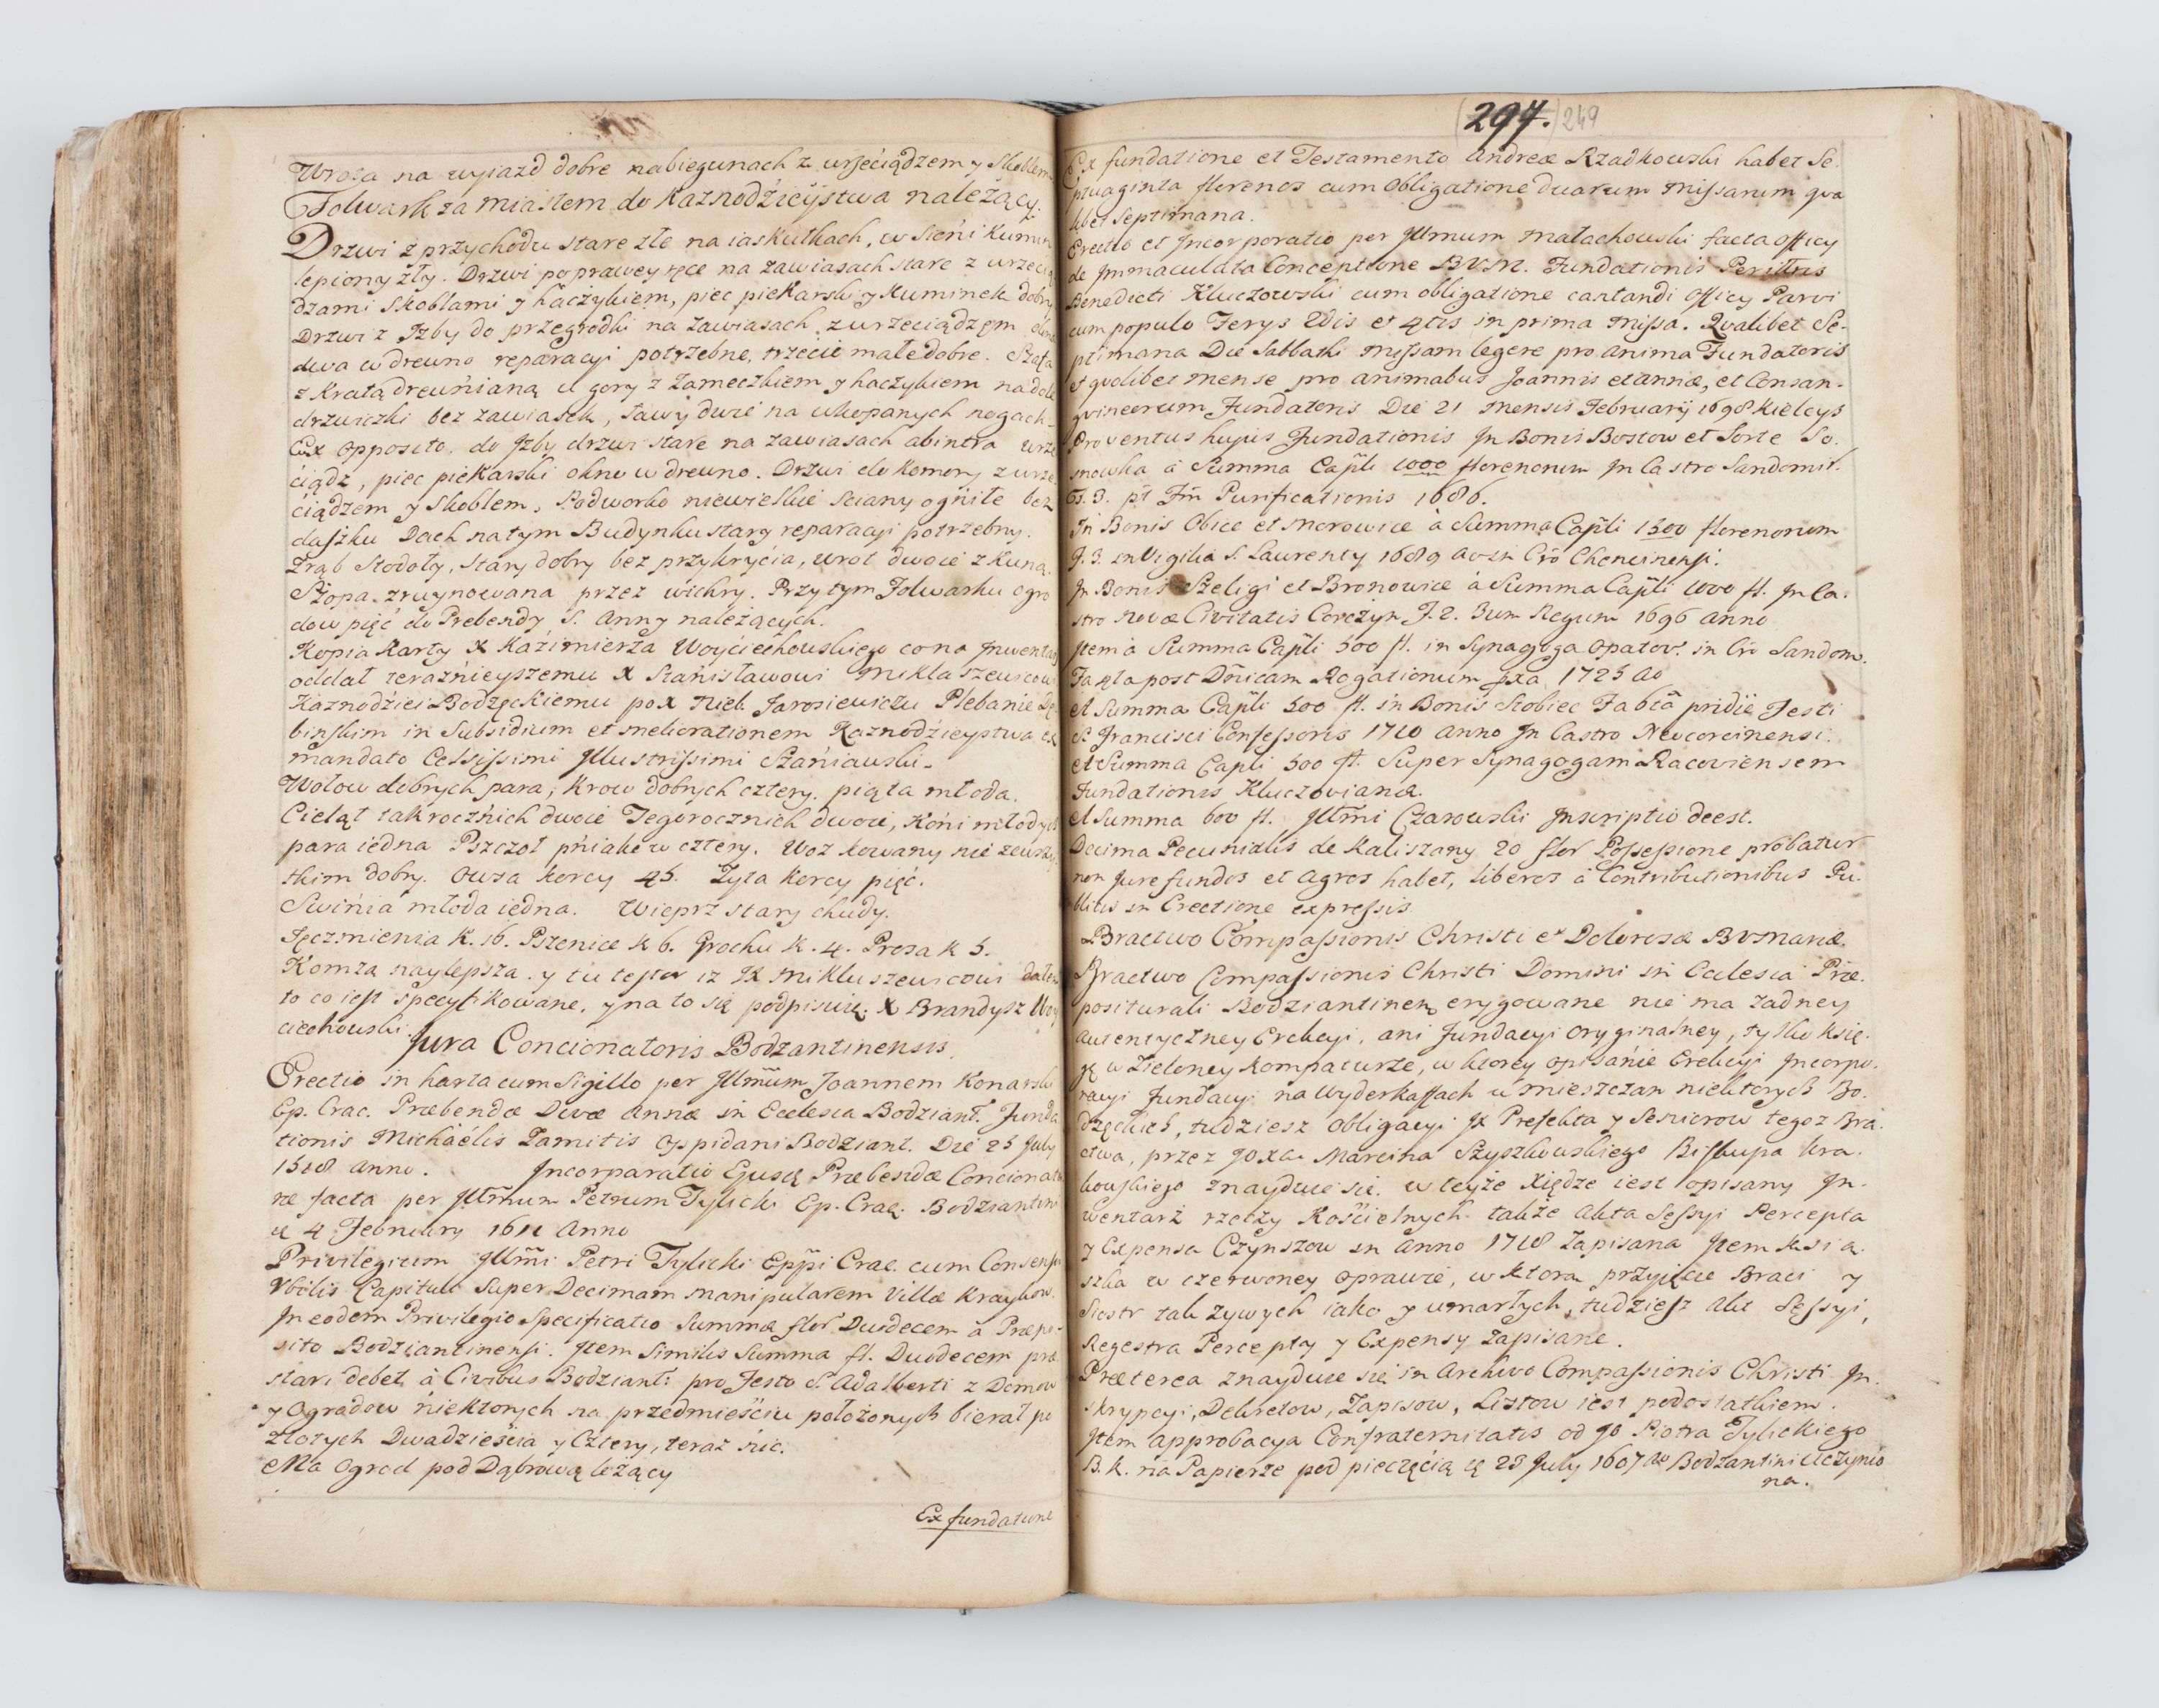 Wrota na wyiazd dobre nabiegunach z wrzeciądzem y Skoblem
Folwark za miastem do Kaznodzieystwa należący.
Drzwi z przychodu stare złe na iaskułkach, w Sieni Kumin
lepiony zły. Drzwi po prawey ręce na zawiasach stare z wrzecią
dzami Skoblami y haczykiem, piec piekarski y Kuminek dobry
Drzwi z Izby do przegrodki na zawiasach z wrzeciądzem okna
dwa w drewno reparacyi potrzebne, trzecie małe dobre. Szafa
z kratą drewnianą u gory z zameczkiem y haczykiem na dole
drzwiczki bez zawiasek, ławy dwie na wkopanych nogach.
Ex opposito, do Izby drzwi stare na zawiasach abintra wrze
ciądz, piec piekarski okno w drewno. Drzwi do komory z wrze
ciądzem y Skoblem, Podworko niewielkie sciany ogniłe bez
daszku Dach na tym Budynku stary reparacyi potrzebny.
Zrąb Stodoły, stary dobry bez przykrycia, wrot dwoie z Kuną.
Szopa zruynowana przez wichry. Przy tym Folwarku ogro
dow pięć do Prebendy S. Anny należących.
Kopia Karty X Kazimierza Woyciechowskiego co na Inwentarz
oddał teraznieyszemu X Stanisławowi Miklaszewiczowi
Kaznodziei Bodzęckiemu po X Nieb. Jarosiewiczu Plebanie Dę
binskim in Subsidium et meliorationem Kaznodzieystwa ex
mandato Celsissimi Illustrissimi Szaniawski.
Wołow dobrych para, krow dobrych cztery. piąta młoda.
Cieląt takrocznich dwoie Tegorocznich dwoie, Koni młodych
para iedna Pszczoł pniakow cztery. Woz kowany nie zewszy
tkim dobry. Owsa korcy 45. Zyta korcy pięć.
Swinia młoda iedna. Wieprz stary chudy.
Jęczmienia K. 16. Pszenice k 6. Grochu k. 4. Prosa k 3.
Komza naylepsza y tu tester iz JX Mikluszewiczowi dałem
to co iest specyfikowane, y na to się podpisuię. X Brandysz Woy
ciechowski.
Jura Concionatoris Bodzantinensis.
Erectio in harta cum Sigillo per Illmum Joannem Konarski
Ep. Crac. Præbendæ Divæ Annæ in Ecclesia Bodziant. Funda
tionis Michaelis Zamitis Oppidani Bodziant. Die 25 July
1518 anno. Incorporatio Ejusq Præbendæ Concionato
ræ facta per Illmum Petrum Tylicki Ep. Crac. Bodziantini
d 4 February 1611 Anno
Privilegium Illmi Petri Tylicki Eppi Crac. cum Consensu
Vbilis Capituli Super Decimam manipularem Villæ Kraykow.
In eodem Privilegio Specificatio Summæ flor Duodecem à Præpo-
sito Bodziantinensi. Item Similis Summa fl. Duodecem præ
stari debet à Civibus Bodziant: pro Festo S. Adalberti z Domow
y Ogrodow niektorych na przedmieściu położonych bierał po
złotych Dwadzieścia y Cztery, teraz nic.
Ma Ogrod pod Dąbrową leżący
Ex fundatione
297. 249
Ex fundatione et Testamento Andreæ Rzadkowski habet Se-
ptuaginta florenos cum Obligatione duarum Missarum qua
libet Septimana.
Erectio et Incorporatio per Illmum Małachowski facta Officy
de Immaculata Conceptione B.V.M. Fundationis Perillris
Benedicti Kluczowski cum obligatione cantandi Officy Parvi
cum populo Ferys 2dis et 4tis in prima Missa. Qualibet Se-
ptimana Die Sabbathi Missam legere pro anima Fundatoris
et qvolibet mense pro animabus Joannis et Annæ, et Consan-
gvineorum Fundatoris Die 21 Mensis February 1698 Kielcys
Proventus hujus Fundationis In Bonis Bostow et Sorte So.
snowka à Summa Capli 1000 florenorum In Castro Sandomir.
F. 3. pt Fm Purificationis 1686.
In Bonis Obice et Morowice à Summa Capli 1500 florenorum
F. 3. in Vigilia S. Laurenty 1689 ao in Cro Chencinensi.
In Bonis Szeligi et Bronowice à Summa Capli 1000 fl. In Ca-
stro Novæ Civitatis Corczyn F. 2. 3um Regum 1696 anno
Item à Summa Capli 500 fl. in Synagoga Opatov. in Cro Sandom.
Fa 4ta post Dnicam Rogationum pxa 1725 ao
A Summa Capli 500 fl. in Bonis Skobiec Fabta pridie Festi
S. Francisci Confessoris 1710 anno In Castro Neocorcinensi.
A Summa Capli 500 fl. Super Synagogam Racoviensem
Fundationis Kluczovianæ.
A Summa 600 fl. Illmi Czarowski Inscriptio deest.
Decima Pecunialis de Kaliszany 20 flor Possessione probatur
non Jure fundos et Agros habet, liberos à Contributionibus Pu-
blicis in Erectione expressis.
Bractwo Compassionis Christi et Dolorosæ BVMariæ.
Bractwo Compassionis Christi Domini in Ecclesia Præ-
positurali Bodziantinen erygowane nie ma zadney
Autentyczney Erekcyi, ani Fundacyi Oryginalney, tylko księ-
gę w Zieloney Kompaturze, w ktorey opisanie Erekcyi Incorpo-
racyi Fundacyi na Wyderkaffach u mieszczan niektorych Bo-
dzęckich, tudziesz Obligacyi JX Prefekta y Seniorow tegoz Bra-
ctwa, przez JOXcia Marcina Szyszkowskiego Biskupa Kra-
kowskiego znayduie się. w teyże Xiędze iest opisany In-
wentarz rzeczy Kościelnych także Akta Sessyi Percepta
y Expensa Czynszow in Anno 1718 Zapisana Item Ksią-
szka w czerwoney oprawie, w ktora przyięcie Braci y
Siostr tak zywych iako y umarłych, tudziesz Akt Sessyi,
Regestra Percepty y Expensy zapisane.
Præterea znayduie się in Archivo Compassionis Christi In-
skrypcyi, Dekretow, Zapisow, Listow iest podostatkiem.
Item Approbacya Confraternitatis od JO Piotra Tylickiego
B. K. na Papierze pod pieczęcią d 28 July 1607 ao Bodzantini uczynio
na.